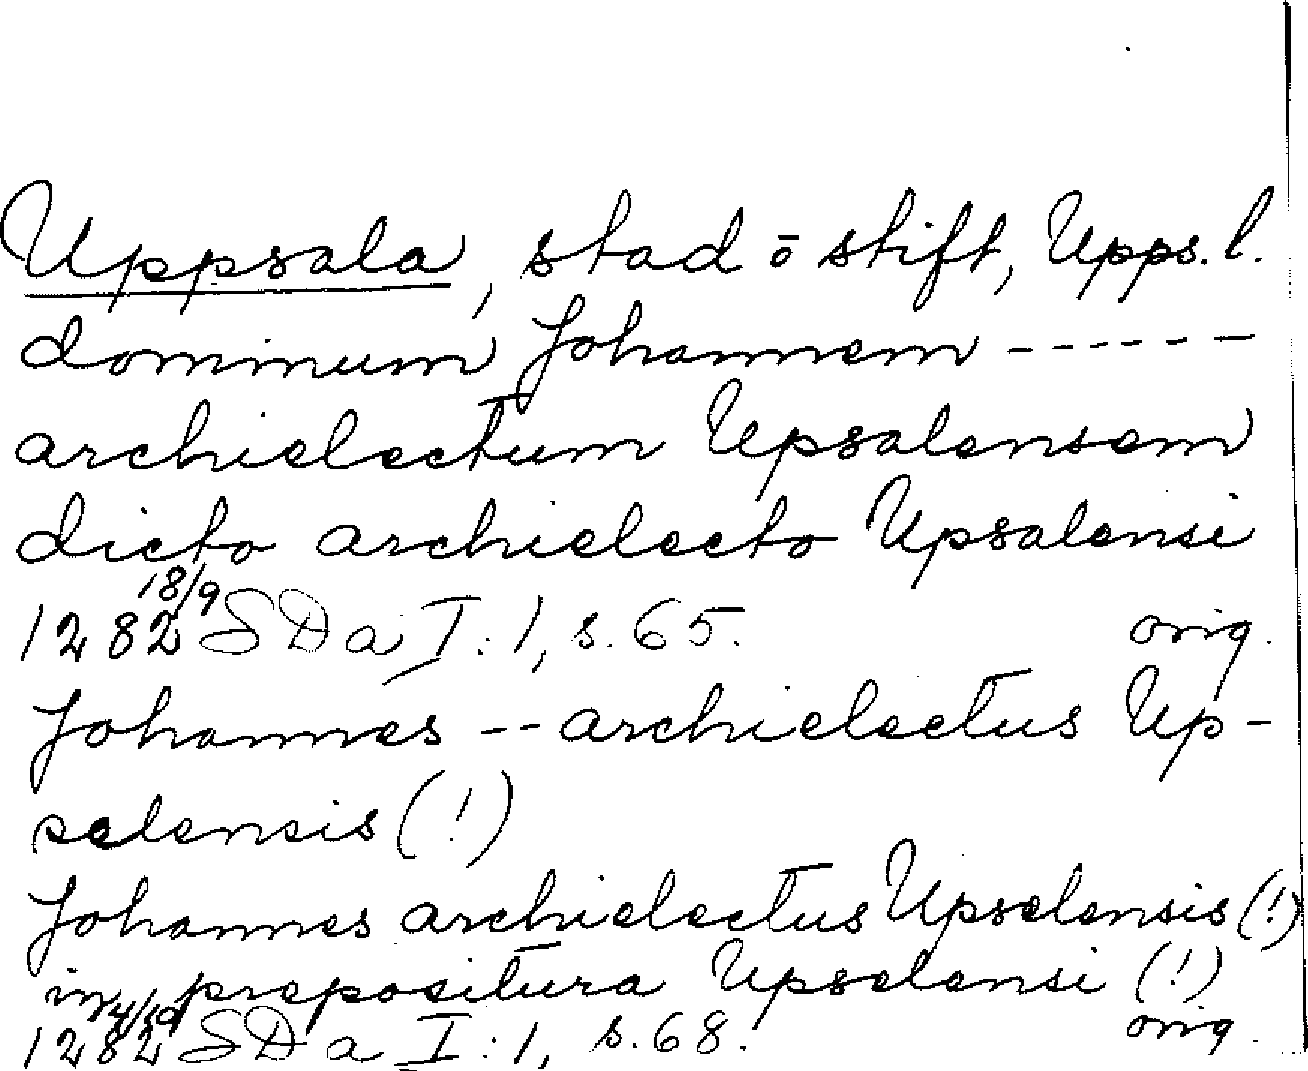 Uppsala, stad o stift, Upps.l.
dominum Johannem ------
archielectum Upsalensem
dicto archielecto Upsalensi
1282 18/9 SDa I:1, s.65. orig.
Johannes -- archielectus Up-
selensis (!)
Johannes archielectus Upselensis (!)
in prepositura Upselensi (!)
1282 SDa I:1, s.68. orig.